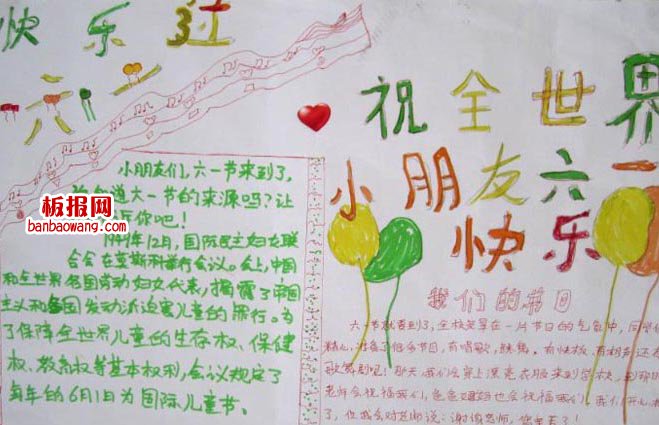 快乐过
六一
祝全世界
小朋友六一
快乐
小朋友们,六一节来到了,
道六一节的来源吗?让
诉你吧!
板报网
banbaowang.com
1949年12月,国际民主妇女联
合会在莫斯科举行会议。会上,中国
和全世界各国劳动妇女代表,揭露了帝国
主义和各国反动派迫害儿童的罪行。为
了保障全世界儿童的生存权、保健
权、教育权等基本权利,会议规定了
每年的6月1日为国际儿童节。
我们的节日
六一节就要到了,全校笼罩在一片节日的气氛中,同学们
精心准备了很多节目,有唱歌,跳舞,有快板,有相声还有
歌舞剧呢!那天,我们会穿上漂亮衣服来到学校,到那时
老师会祝福我们,爸爸妈妈也会祝福我们。我们开心
了,但我会对老师说:谢谢老师,您辛苦了!